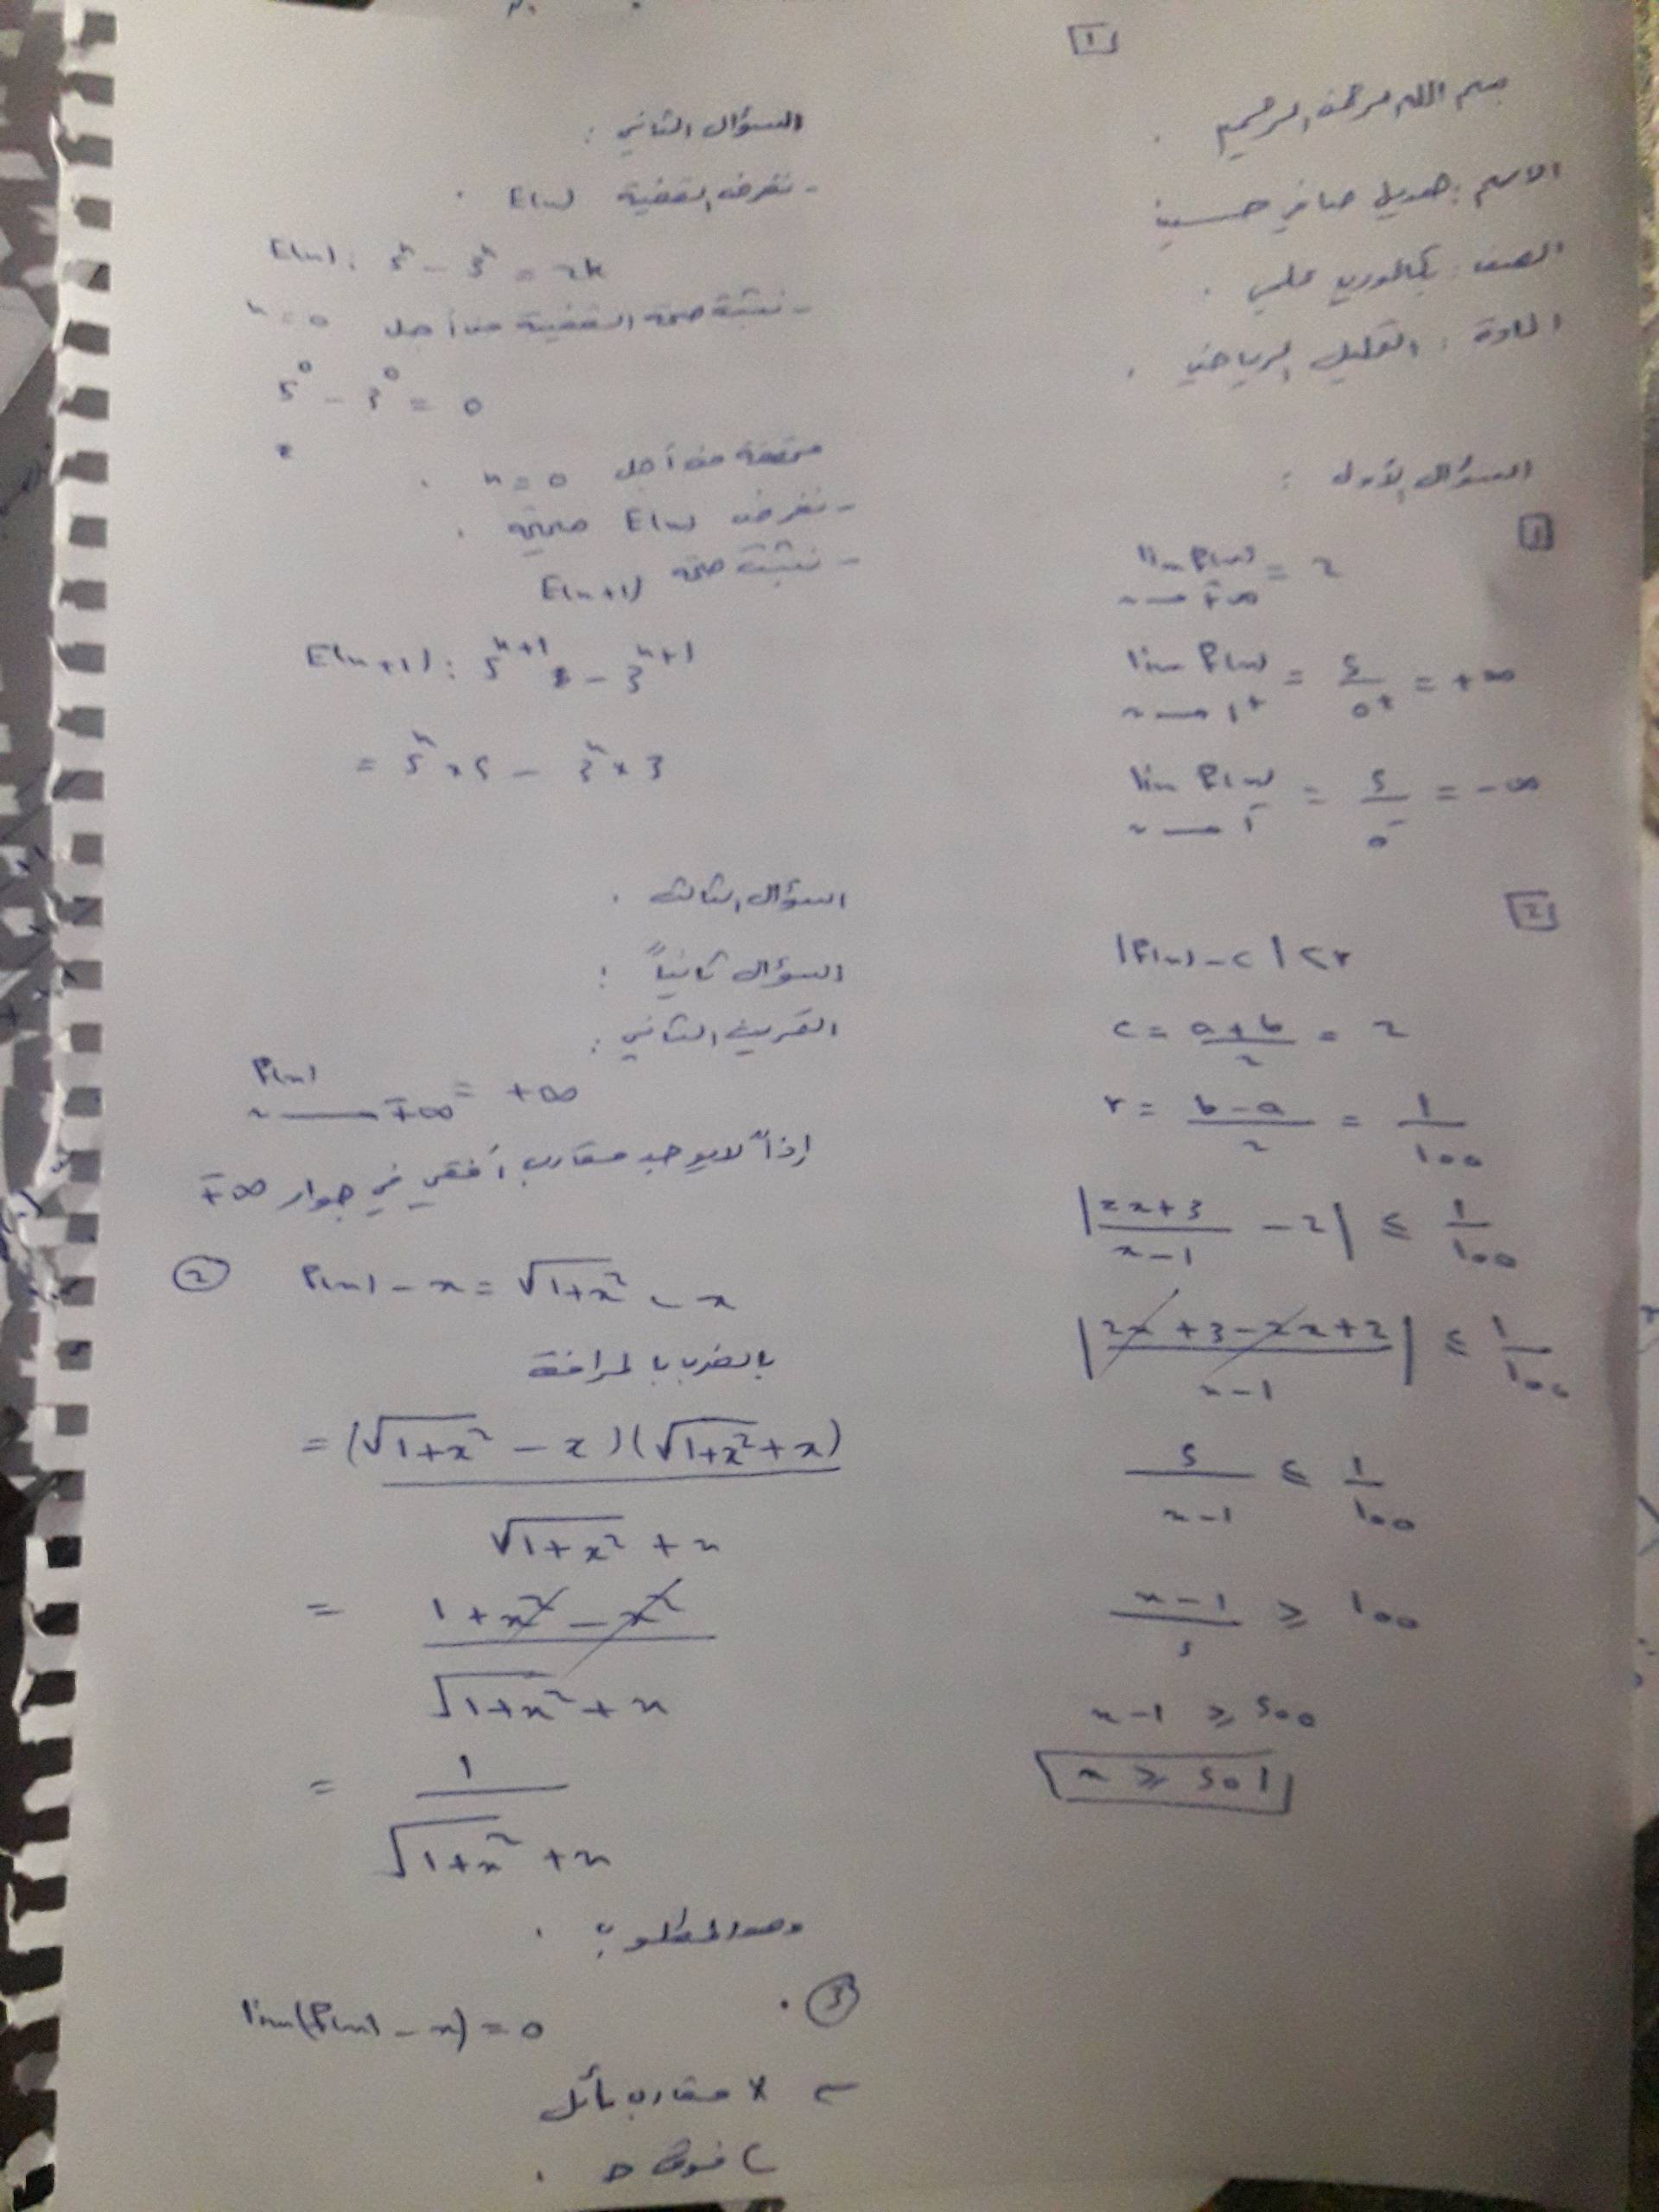 1
بسم الله الرحمن الرحيم
الاسم : هديل صافي حسين
الصف : بكالوريا علمي .
المادة : التحليل الرياضي .
السؤال الأول :
1
lim f(x) = 2
x → ∓∞
lim f(x) = 5/0+ = +∞
x → 1+
lim f(x) = 5/0- = -∞
x → 1-
2
|f(x) - c| < r
c = a+b/2 = 2
r = b-a/2 = 1/100
|2x+3/x-1 - 2| ≤ 1/100
|2x+3-2x+2/x-1| ≤ 1/100
5/x-1 ≤ 1/100
x-1/5 ≥ 100
x-1 ≥ 500
x ≥ 501
السؤال الثاني :
- نفرض القضية E(n) .
E(n) : 5ⁿ - 3ⁿ = 2k
- نثبت صحة القضية من أجل n = 0
5⁰ - 3⁰ = 0
محققة من أجل n = 0 .
- نفرض E(n) صحيحة .
- نثبت صحة E(n+1)
E(n+1) : 5ⁿ⁺¹ - 3ⁿ⁺¹
= 5ⁿ×5 - 3ⁿ×3
السؤال الثالث .
السؤال ثانياً :
التمرين الثاني :
f(x) = +∞
x → ∓∞
إذاً لا يوجد مقارب أفقي في جوار ∓∞
2 f(x) - x = √1+x² - x
بالضرب بالمرافق
= (√1+x² - x)(√1+x² + x)
√1+x² + x
= 1+x²-x²
√1+x² + x
= 1
√1+x² + x
وهو المطلوب .
3 .
lim(f(x) - x) = 0
مقارب مائل
c فوق Δ .